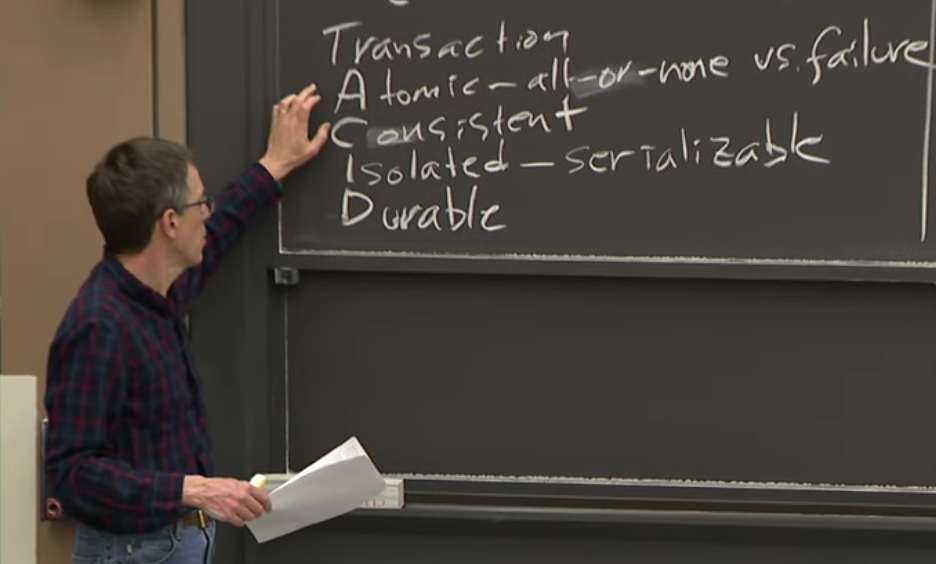 Transaction
Atomic - all-or-none vs. failure
Consistent
Isolated - serializable
Durable